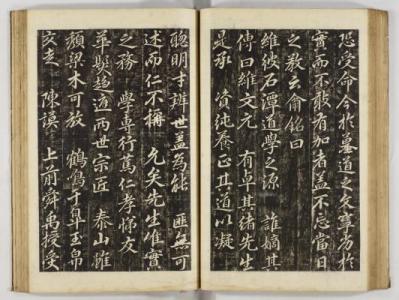 恐受命今於墓道之文寧為於
實而不敢有加者蓋不忘當日
之教云爾銘曰
維彼石潭道學之源 誰嫡其
傳曰維文元 有卓其緒先生
是承 資純養正其道以凝
聰明才辯世蓋為能 匪無可
述而仁不稱 允矣先生惟實
之務 學專行篤仁孝悌友
華 超 兩世宗匠 泰山雖
頹梁木可放 鶴 于皐玉帛
交走 陳謨 上前舜禹授受